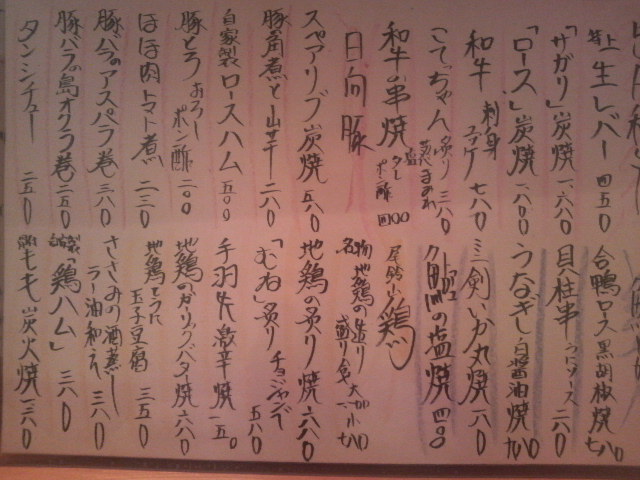 特上生レバー 四五〇
「サガリ」炭焼 一、六八〇
「ロース」炭焼 一、八〇〇
和牛 刺身 ユッケ 七八〇
こてっちゃん 炙り 三八〇
和牛の串焼 塩 タレ ポン酢 四〇〇
日向豚
スペアリブ炭焼 五八〇
豚角煮と山芋 二八〇
自家製ロースハム 五〇〇
豚とろおろしポン酢
ほほ肉トマト煮 二三〇
豚バラのアスパラ巻 三八〇
豚バラの島オクラ巻 二五〇
タンシチュー 二五〇
合鴨ロース黒胡椒焼 七八〇
貝柱串 うにソース 二八〇
うなぎ白醤油焼 九八〇
ミニ剣いか丸焼 一八〇
の塩焼 四〇〇
尾鈴 鶏
名物 地鶏の造り盛り合せ 大 小 七八〇
地鶏の炙り焼 六八〇
「むね」炙り チョジャンで 五八〇
手羽先激辛焼 一五〇
地鶏のガーリックバター焼 六八〇
玉子豆腐 三五〇
ささみの酒蒸し ラー油和え 三八〇
自家製「鶏ハム」 三八〇
もも炭火焼 一三八〇